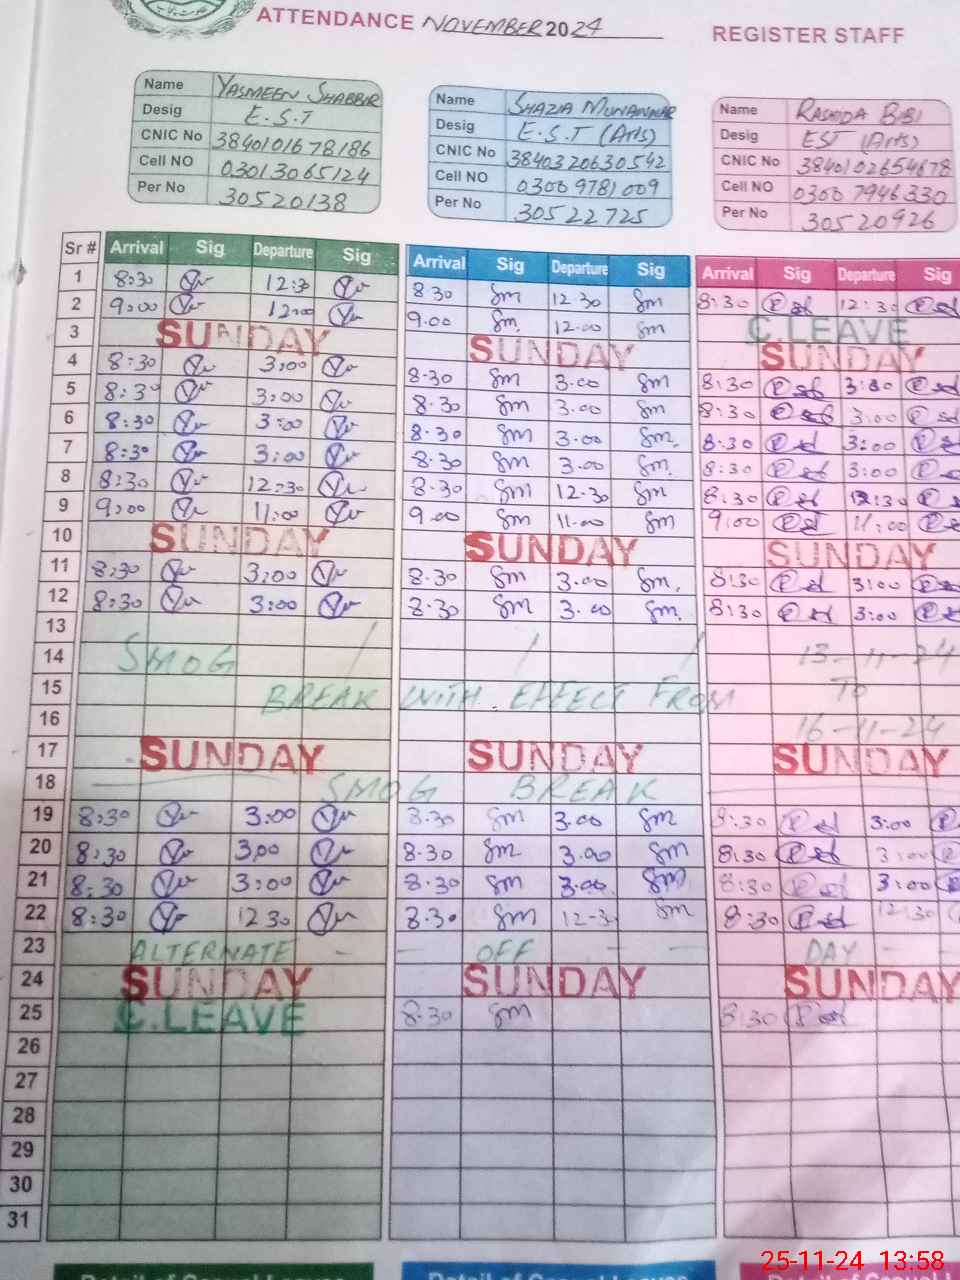 ATTENDANCE NOVEMBER 2024 REGISTER STAFF
Name YASMEEN SHABBIR
Desig E.S.T
CNIC No 3840101678186
Cell NO 03013065124
Per No 30520138
Name SHAZIA MUNAWWAR
Desig E.S.T (Arts)
CNIC No 3840320630542
Cell NO 03009781009
Per No 30522725
Name RASHIDA BIBI
Desig EST (Arts)
CNIC No 3840102654678
Cell NO 03007946330
Per No 30520926
Sr # Arrival Sig Departure Sig Arrival Sig Departure Sig Arrival Sig Departure Sig
1 8:30 12:30 8.30 Sm 12.30 Sm 8:30 12:30
2 9:00 12:00 9.00 Sm 12.00 Sm C.LEAVE
3 SUNDAY SUNDAY SUNDAY
4 8:30 3:00 8.30 Sm 3.00 Sm 8:30 3:00
5 8:30 3:00 8.30 Sm 3.00 Sm 8:30 3:00
6 8:30 3:00 8.30 Sm 3.00 Sm 8:30 3:00
7 8:30 3:00 8.30 Sm 3.00 Sm 8:30 3:00
8 8:30 12:30 8.30 Sm 12.30 Sm 8:30 12:30
9 9:00 11:00 9.00 Sm 11.00 Sm 9:00 11:00
10 SUNDAY SUNDAY SUNDAY
11 8:30 3:00 8.30 Sm 3.00 Sm 8:30 3:00
12 8:30 3:00 8.30 Sm 3.00 Sm 8:30 3:00
13
14 SMOG 13-11-24
15 BREAK WITH EFFECT FROM TO
16 16-11-24
17 SUNDAY SUNDAY SUNDAY
18 SMOG BREAK
19 8:30 3:00 8.30 Sm 3.00 Sm 8:30 3:00
20 8:30 3:00 8.30 Sm 3.00 Sm 8:30 3:00
21 8:30 3:00 8.30 Sm 3.00 Sm 8:30 3:00
22 8:30 12 30 8.30 Sm 12-3 Sm 8:30 12:30
23 ALTERNATE - - OFF - - DAY - -
24 SUNDAY SUNDAY SUNDAY
25 C.LEAVE 8.30 Sm 8:30
26
27
28
29
30
31
25-11-24 13:58